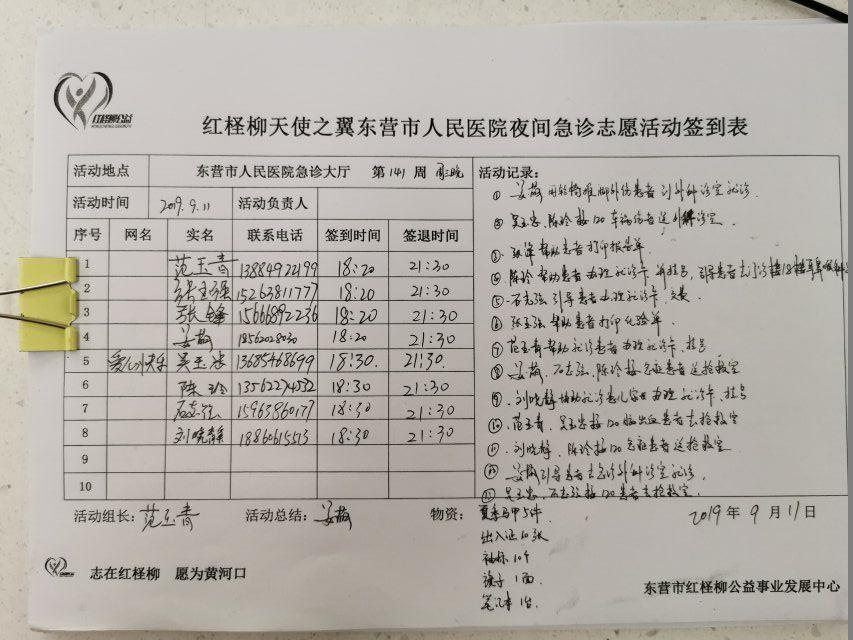 红柽柳公益
红柽柳天使之翼东营市人民医院夜间急诊志愿活动签到表
活动地点 东营市人民医院急诊大厅 第 141 周 周三晚
活动时间 2019.9.11 活动负责人
序号 网名 实名 联系电话 签到时间 签退时间
1 范玉青 13884922199 18:20 21:30
2 张玉强 15263811777 18:20 21:30
3 张锋 15666892236 18:20 21:30
4 姜敏 18562028030 18:20 21:30
5 吴玉忠 13685468699 18:30 21:30
6 陈玲 13562274532 18:30 21:30
7 石志强 15963860177 18:30 21:30
8 刘晓静 18860615513 18:30 21:30
9
10
活动记录:
① 姜敏用轮椅推脚外伤患者到外科诊室就诊
② 吴玉忠,陈玲接120车祸伤者送外科诊室
③ 张锋帮助患者打印报告单
④ 陈玲帮助患者办理就诊卡并挂号,引导患者去门诊楼
⑤ 石志强引导患者办理就诊卡,交费
⑥ 张玉强帮助患者打印化验单
⑦ 范玉青帮助就诊患者办理就诊卡、挂号
⑧ 姜敏,石志强,陈玲接急症患者送抢救室
⑨ 刘晓静协助就诊患儿家长办理就诊卡、挂号
⑩ 范玉青、吴玉忠接120脑出血患者去抢救室
⑪ 刘晓静、陈玲接120急症患者送抢救室
⑫ 姜敏引导患者去急诊外科诊室就诊
⑬ 吴玉忠,石志强接120患者去抢救室
活动组长: 范玉青 活动总结: 姜敏 物资: 夏季马甲5件
出入证10张
袖标10个
旗子1面
笔记本1台
2019 年 9 月 11 日
志在红柽柳 愿为黄河口
东营市红柽柳公益事业发展中心